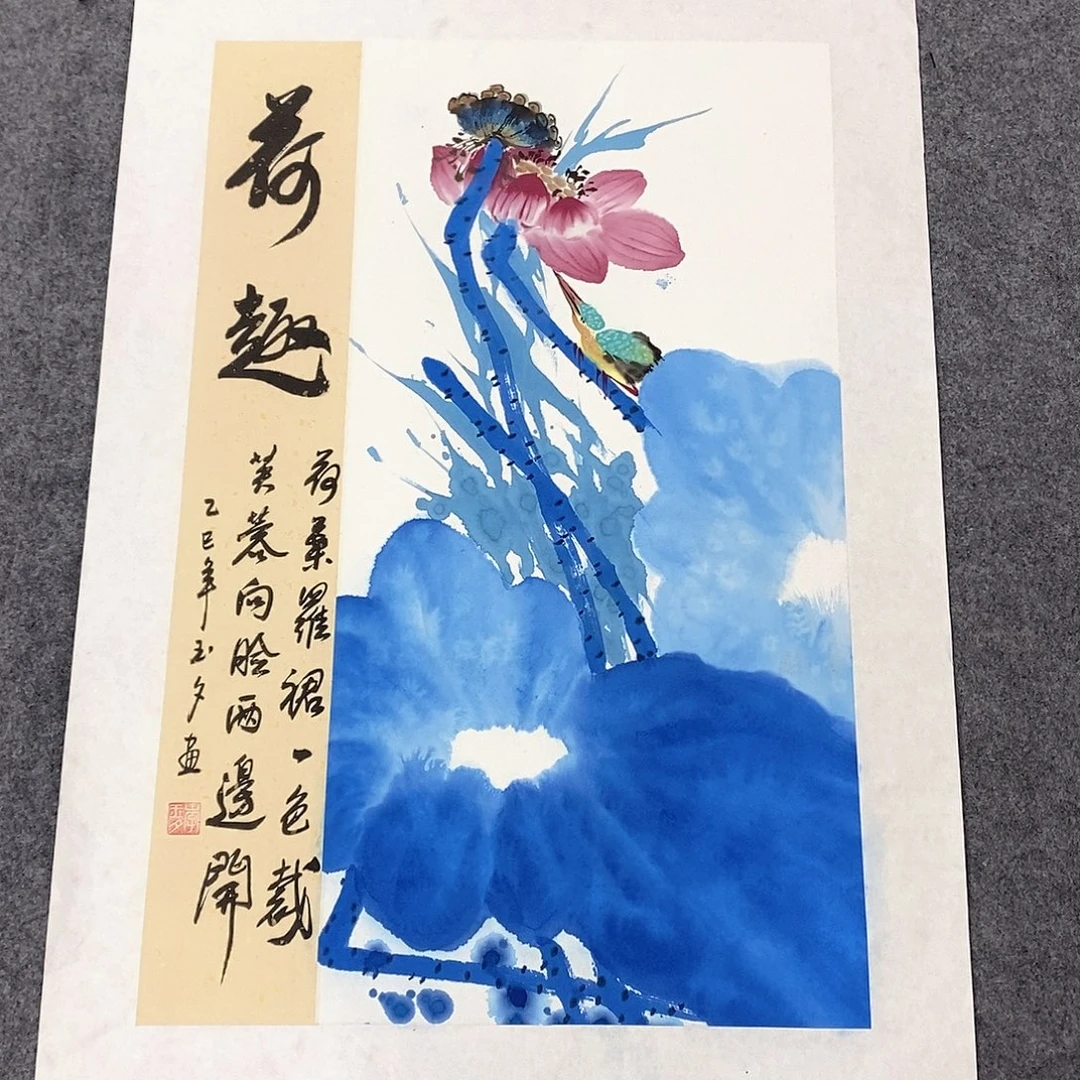 荷趣
荷葉羅裙一色裁
芙蓉向臉兩邊開
乙巳年玉夕畫